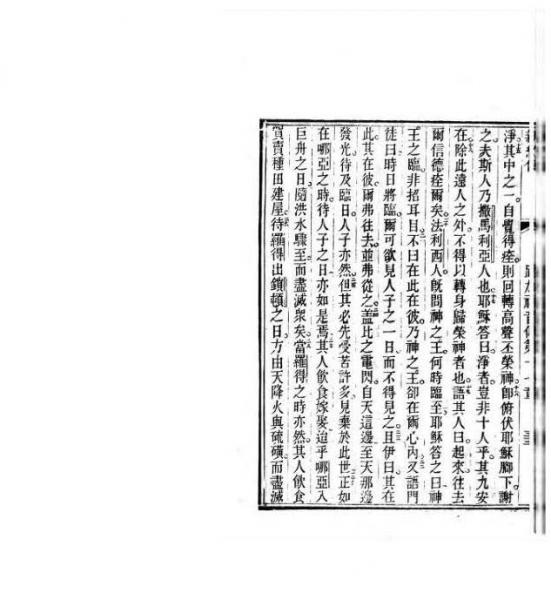 路加福音傳第十七章
淨其中之一自覺得痊則回轉高聲丕榮神卽俯伏耶穌腳下謝
之夫斯人乃撒馬利亞人也耶穌答曰淨者豈非十人乎其九安
在除此遠人之外不得以轉身歸榮神者也語其人曰起來往去
爾信德痊爾矣法利西人旣問神之王何時臨至耶穌答之曰神
王之臨非招耳目不曰在此在彼乃神之王卻在爾心內又語門
徒曰時日將臨爾可欲見人子之一日而不得見之且伊曰其在
此其在彼爾弗往去並弗從之蓋比之電閃自天這邊至天那邊
發光待及臨日人子亦然但其必先受苦許多見棄於此世正如
在哪亞之時待人子之日亦如是焉其人飲食嫁娶迨乎哪亞入
巨舟之日隨洪水驟至而盡滅衆矣當羅得之時亦然其人飲食
買賣種田建屋待羅得出鎖頓之日方由天降火與硫磺而盡滅